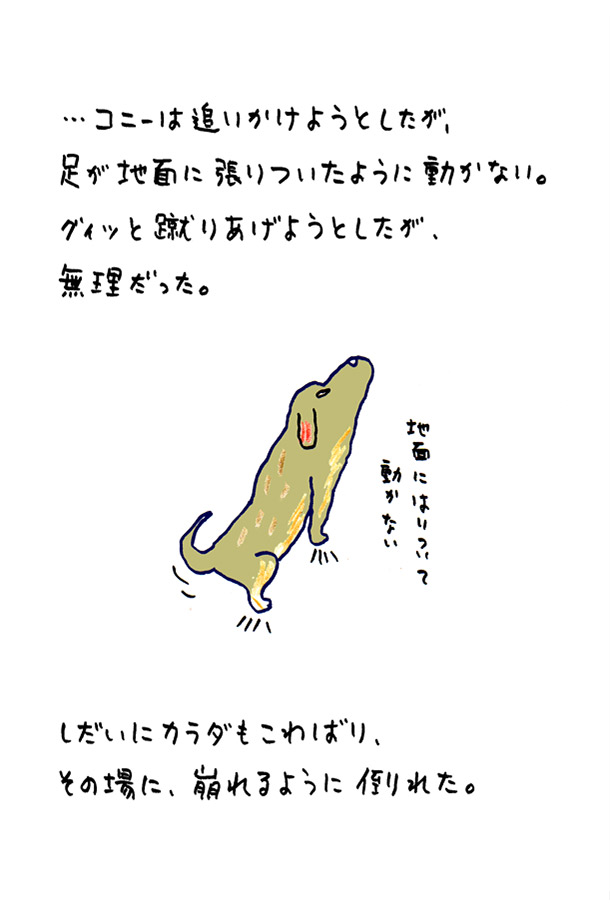 …コニーは追いかけようとしたが、
足が地面に張りついたように動かない。
グィッと蹴りあげようとしたが、
無理だった。
地面にはりついて
動かない
しだいにカラダもこわばり、
その場に、崩れるように倒れた。